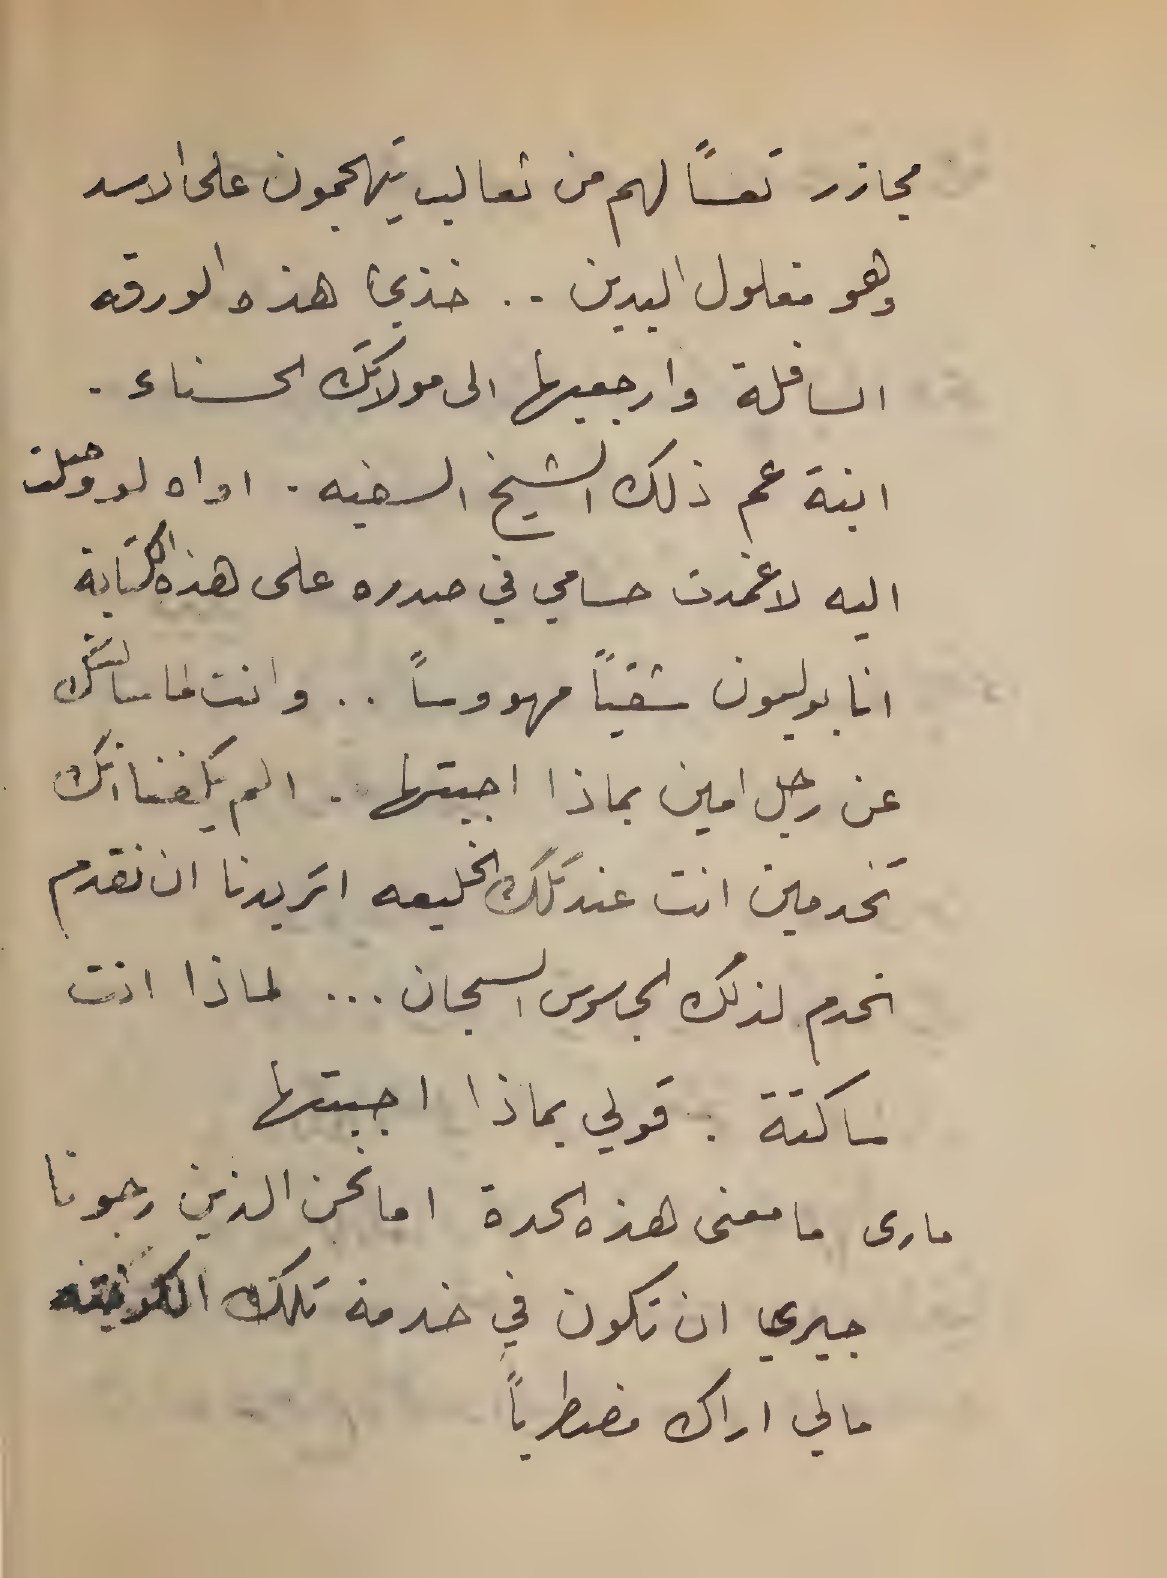 مجازر تعساً لهم من ثعالب يتهجمون على الاسد
وهو مغلول اليدين .. خذي هذه الورقه
السافلة وارجعيها الى مولاتك الحسناء .
ابنة عم ذلك الشيخ السفيه . اواه لو وصلت
اليه لاغمدت حسامي في صدره على هذه الكتابة
انا بوليون شقياً مهووساً .. وانت لما سالتك
عن رجل امين بماذا اجبتها . الم يكفنا انك
تخدمين انت عند تلك الخليعه اتريدنا ان نقدم
انخدم لذلك الجاسوس السجان ... لماذا انت
ساكتة . قولي بماذا اجبتها
مارى ما معنى هذه الحدة اما نحن الذين رجونا
جيري ان تكون في خدمة تلك الكونتيه
مالي اراك مضطرباً